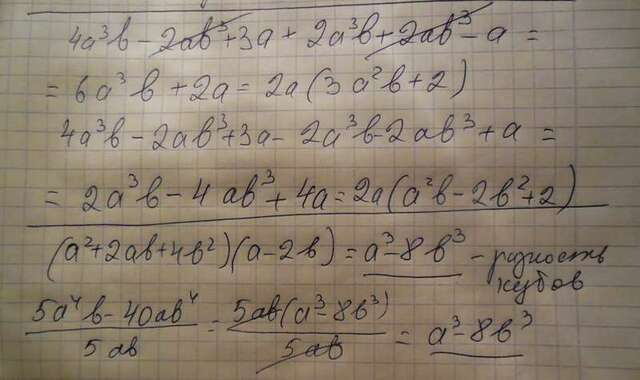 4a³b - 2ab³ + 3a + 2a³b + 2ab³ - a =
= 6a³b + 2a = 2a(3a²b + 2)
4a³b - 2ab³ + 3a - 2a³b - 2ab³ + a =
= 2a³b - 4ab³ + 4a = 2a(a²b - 2b² + 2)
(a² + 2ab + 4b²)(a - 2b) = a³ - 8b³ - разность кубов
(5a⁴b - 40ab⁴)/(5ab) = (5ab(a³ - 8b³))/(5ab) = a³ - 8b³